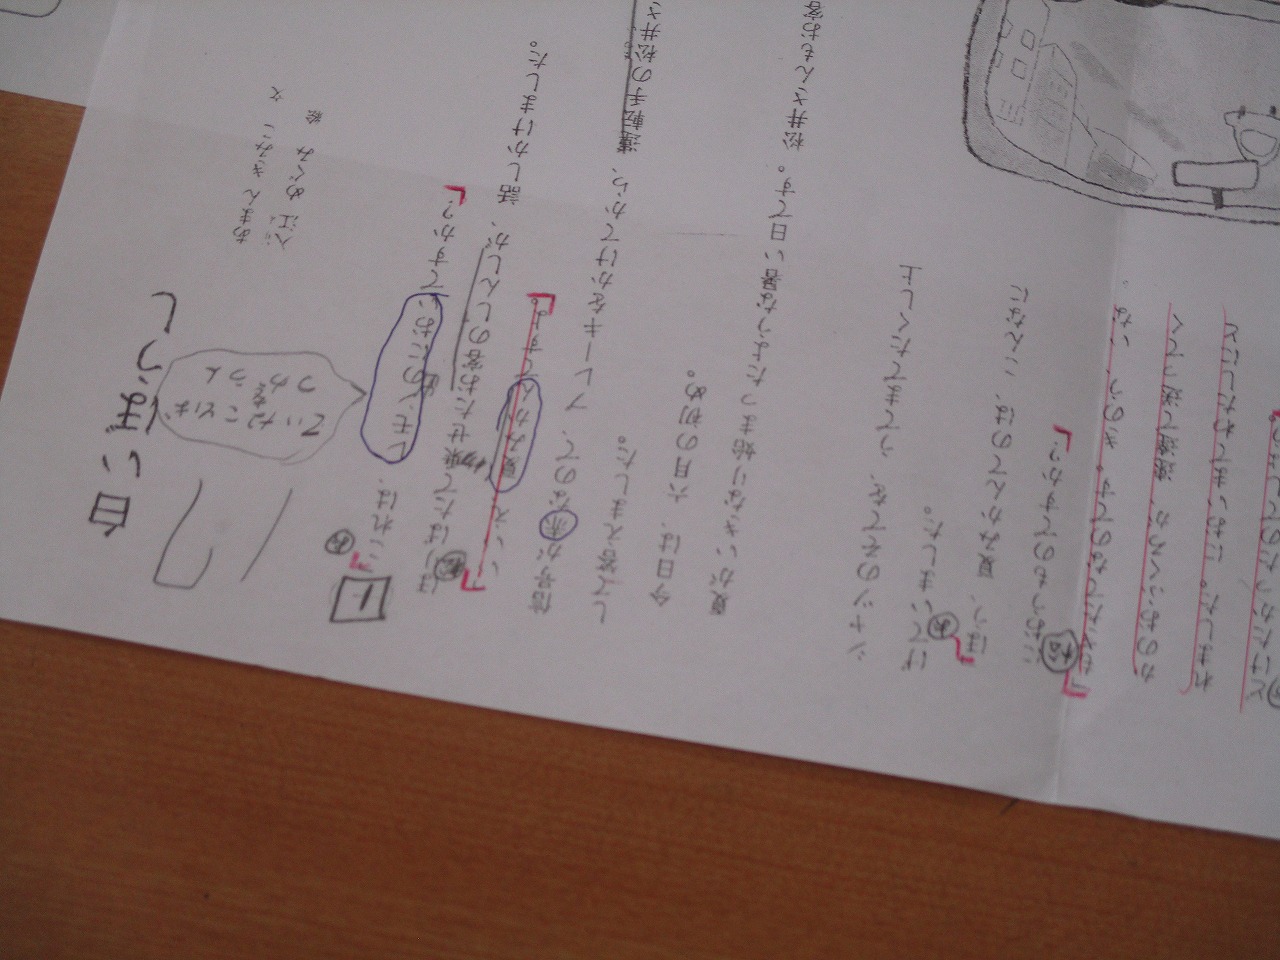 白いぼうし
あまん きみこ 文
入江 めぐみ 絵
1
「これは、レモンのにおいですか？」
ほりばたで乗せたお客のしんしが、話しかけました。
「いいえ、夏みかんですよ。」
信号が赤なので、ブレーキをかけてから、運転手の松井さ
して答えました。
今日は、六月の初め。
夏がいきなり始まったような暑い日です。松井さんもお客
シャツのそでを、うでまでたくし上
げていました。
「ほう、夏みかんてのは、こんなに
におうものですか？」
「もぎたてなのです。きのう、いな
かのおふくろが、速達で送ってく
れました。においまでわたしにと
どけたかったのでしょう。」